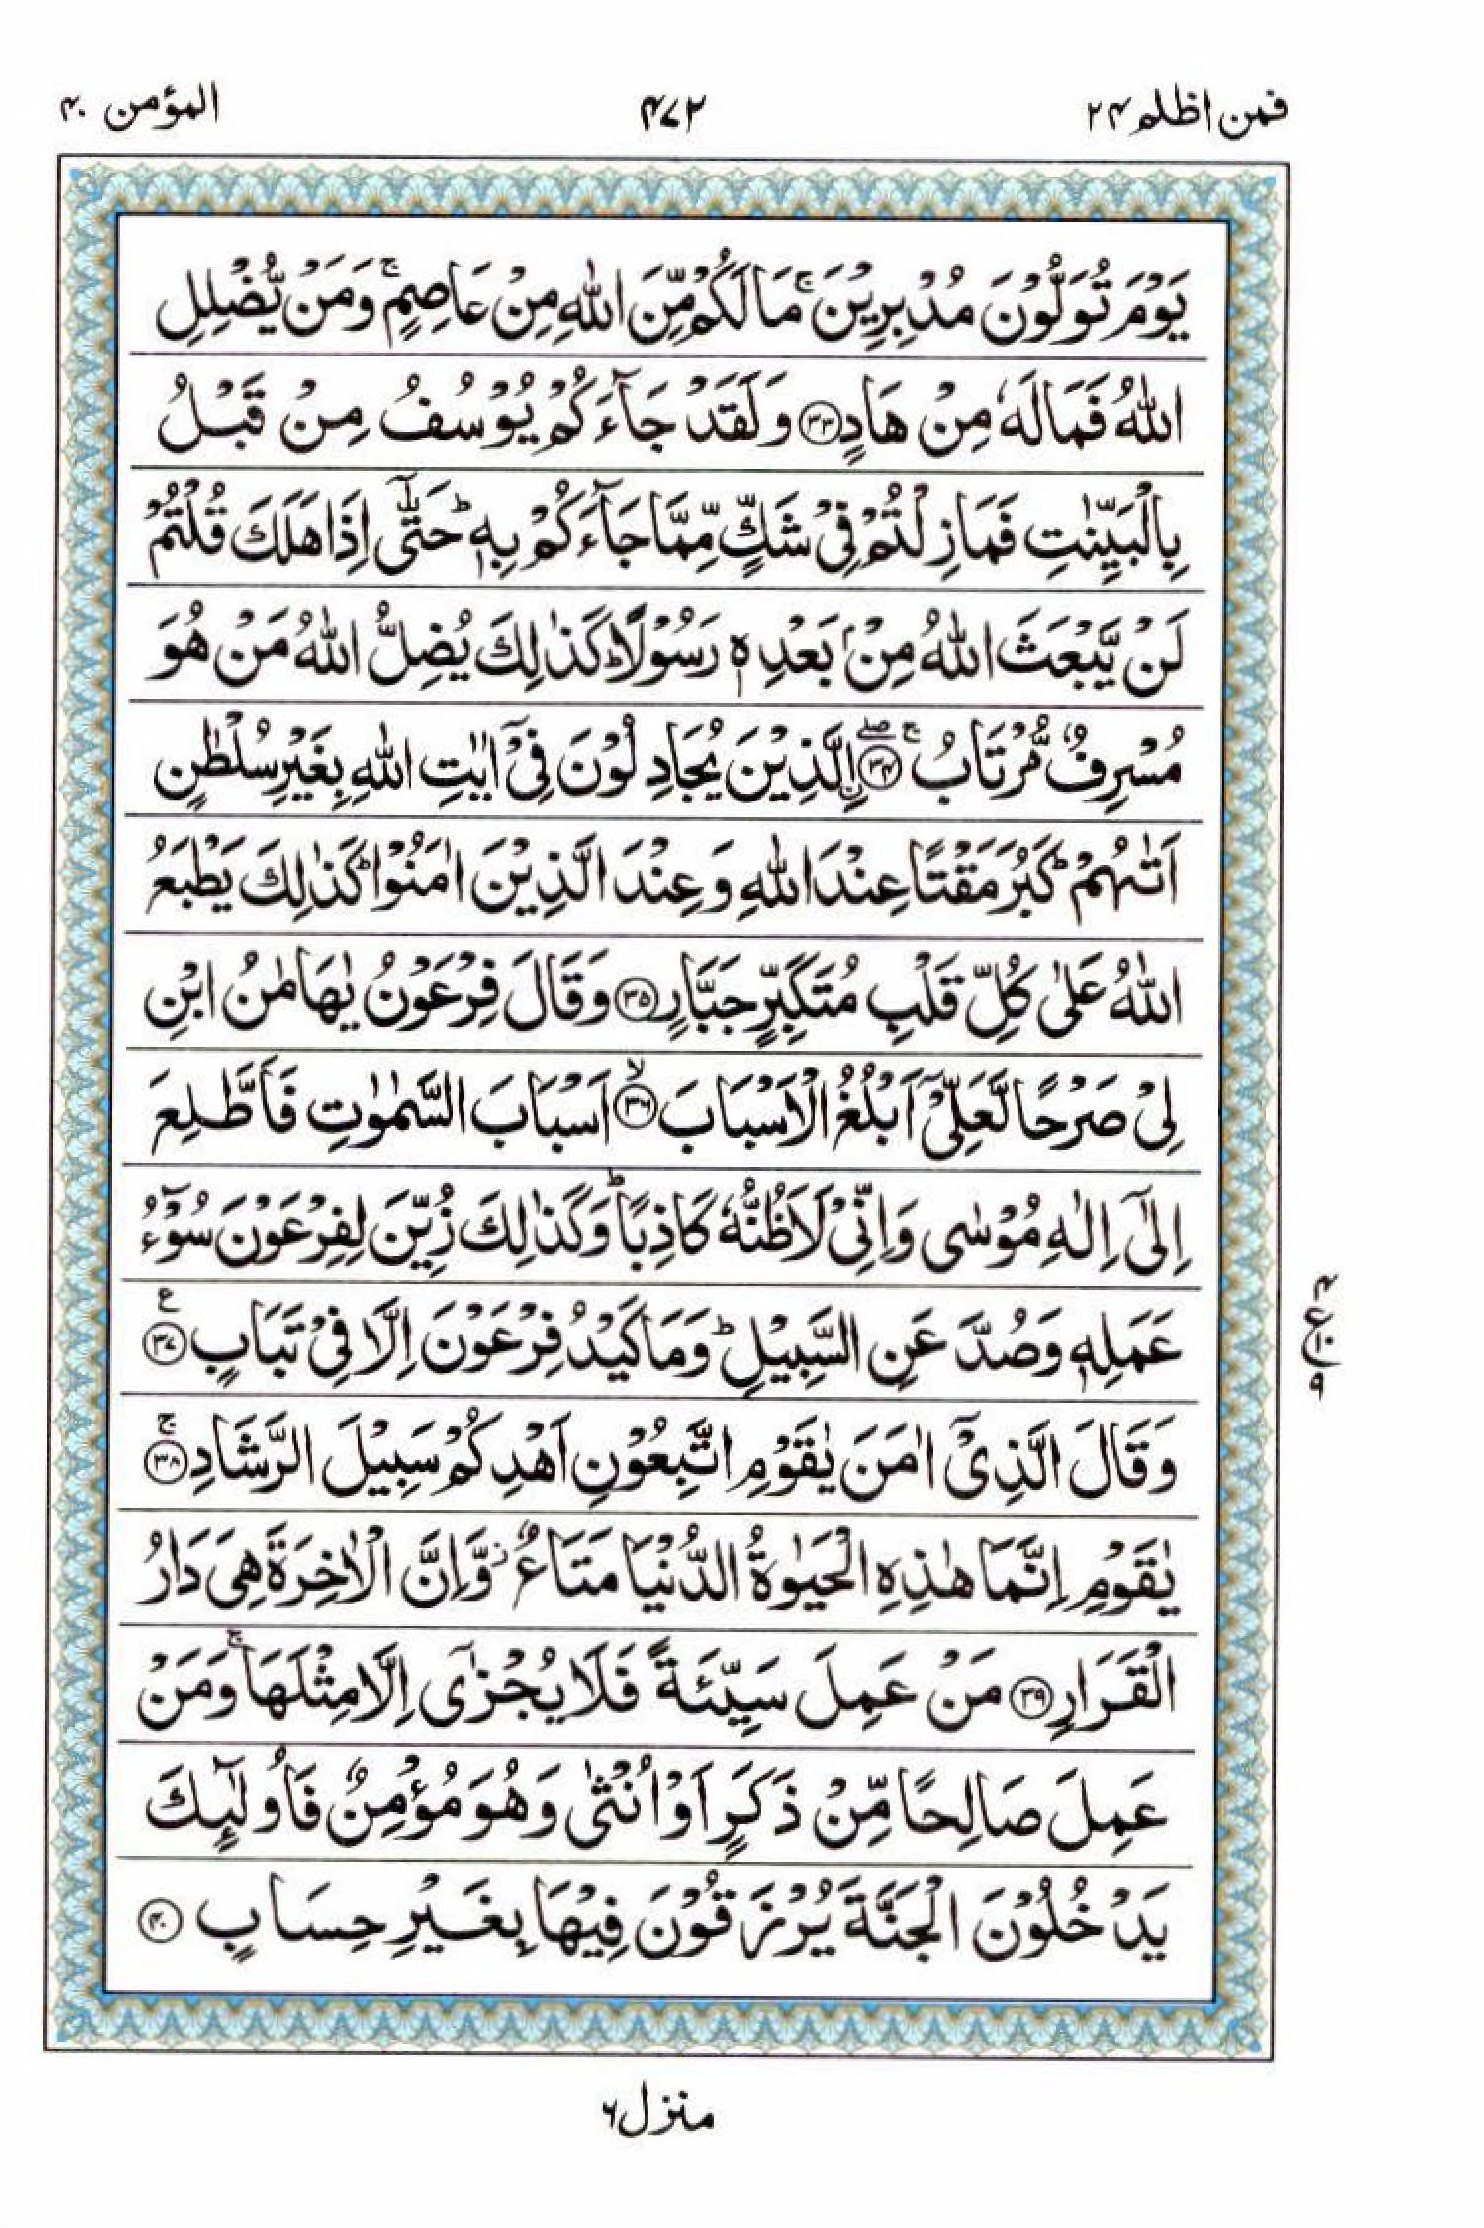 فمن اظلم ۲۴ ۴۷۲ المؤمن ۴۰
يَوْمَ تُوَلُّوْنَ مُدْبِرِيْنَ ۚ مَا لَكُمْ مِّنَ اللّٰهِ مِنْ عَاصِمٍ ۚ وَمَنْ يُّضْلِلِ
اللّٰهُ فَمَا لَهٗ مِنْ هَادٍ ﴿۳۳﴾ وَلَقَدْ جَآءَكُمْ يُوْسُفُ مِنْ قَبْلُ
بِالْبَيِّنٰتِ فَمَا زِلْتُمْ فِيْ شَكٍّ مِّمَّا جَآءَكُمْ بِهٖ ؕ حَتّٰٓى اِذَا هَلَكَ قُلْتُمْ
لَنْ يَّبْعَثَ اللّٰهُ مِنْۢ بَعْدِهٖ رَسُوْلًا ؕ كَذٰلِكَ يُضِلُّ اللّٰهُ مَنْ هُوَ
مُسْرِفٌ مُّرْتَابُ ۚ ﴿۳۴﴾ ۖ اِۨلَّذِيْنَ يُجَادِلُوْنَ فِيْٓ اٰيٰتِ اللّٰهِ بِغَيْرِ سُلْطٰنٍ
اَتٰىهُمْ ؕ كَبُرَ مَقْتًا عِنْدَ اللّٰهِ وَعِنْدَ الَّذِيْنَ اٰمَنُوْا ؕ كَذٰلِكَ يَطْبَعُ
اللّٰهُ عَلٰى كُلِّ قَلْبِ مُتَكَبِّرٍ جَبَّارٍ ﴿۳۵﴾ وَقَالَ فِرْعَوْنُ يٰهَامٰنُ ابْنِ
لِيْ صَرْحًا لَّعَلِّيْٓ اَبْلُغُ الْاَسْبَابَ ۙ ﴿۳۶﴾ اَسْبَابَ السَّمٰوٰتِ فَاَطَّلِعَ
اِلٰٓى اِلٰهِ مُوْسٰى وَاِنِّيْ لَاَظُنُّهٗ كَاذِبًا ؕ وَكَذٰلِكَ زُيِّنَ لِفِرْعَوْنَ سُوْٓءُ
عَمَلِهٖ وَصُدَّ عَنِ السَّبِيْلِ ؕ وَمَا كَيْدُ فِرْعَوْنَ اِلَّا فِيْ تَبَابٍ ﴿۳۷﴾ ع
وَقَالَ الَّذِيْٓ اٰمَنَ يٰقَوْمِ اتَّبِعُوْنِ اَهْدِكُمْ سَبِيْلَ الرَّشَادِ ۚ ﴿۳۸﴾
يٰقَوْمِ اِنَّمَا هٰذِهِ الْحَيٰوةُ الدُّنْيَا مَتَاعٌ ؗ وَّاِنَّ الْاٰخِرَةَ هِيَ دَارُ
الْقَرَارِ ﴿۳۹﴾ مَنْ عَمِلَ سَيِّئَةً فَلَا يُجْزٰٓى اِلَّا مِثْلَهَا ۚ وَمَنْ
عَمِلَ صَالِحًا مِّنْ ذَكَرٍ اَوْ اُنْثٰى وَهُوَ مُؤْمِنٌ فَاُولٰٓئِكَ
يَدْخُلُوْنَ الْجَنَّةَ يُرْزَقُوْنَ فِيْهَا بِغَيْرِ حِسَابٍ ﴿۴۰﴾
۴ ع ۱۰ ۹
منزل ۶